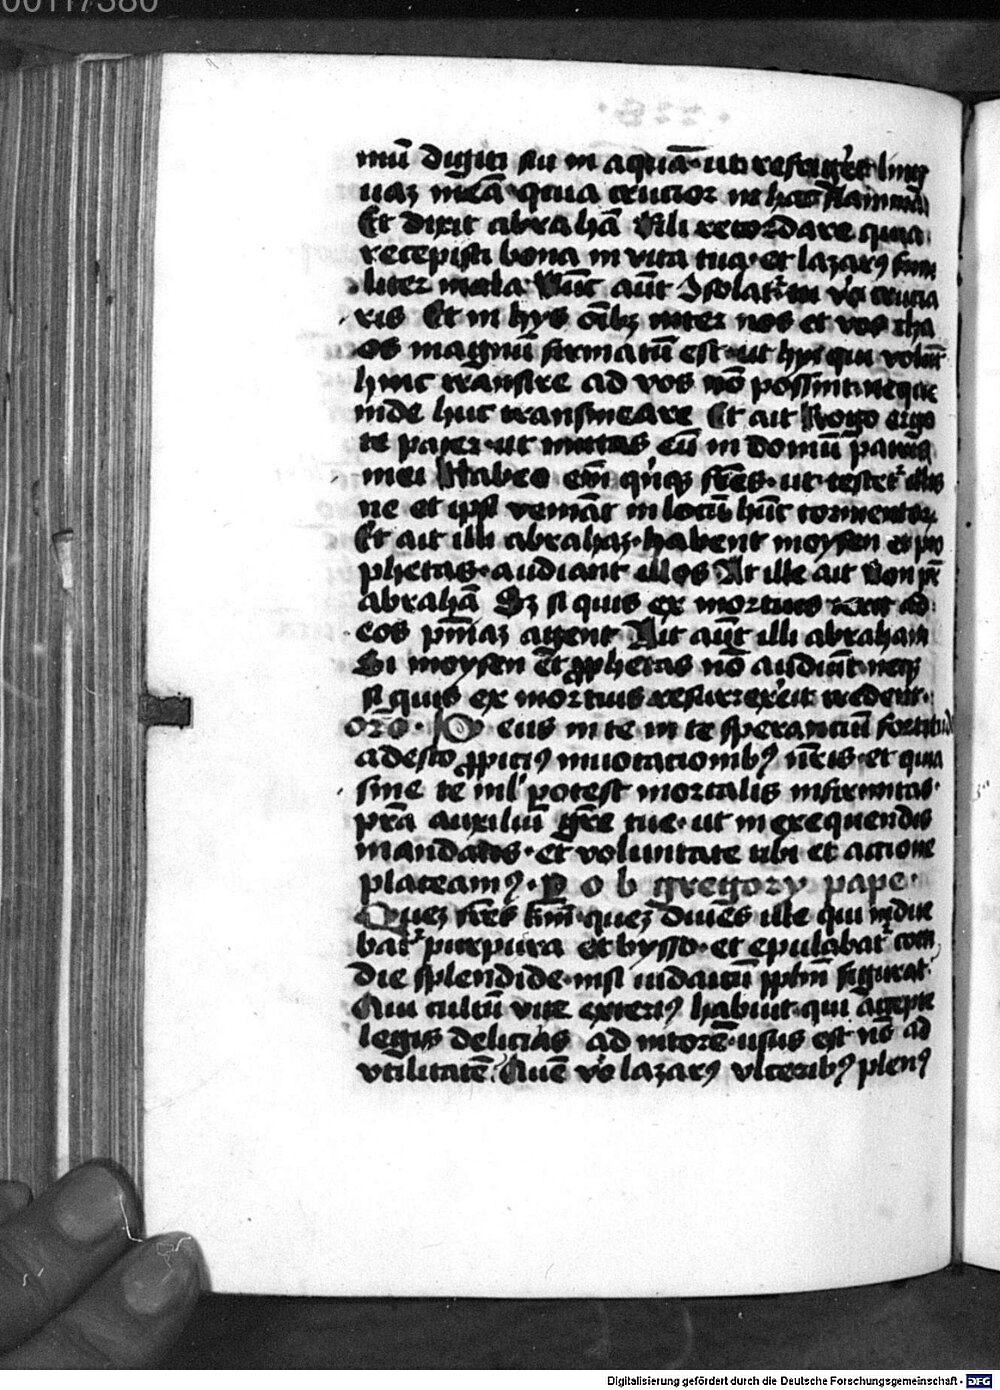 00117380
mū digiti sui in aquā · ut refrigeret ling
uaz meā · quia crucior in hac flamma
Et dixit abrahā Fili recordare quia
recepisti bona in vita tua · et lazarꝰ simi
liter mala Nūc aūt Isolatᷣ tu vo crucia
ris Et in hys oībꝫ inter nos et vos cha
os magnū firmatū est · ut hii qui volūt
hinc transire ad vos nō possint neque
inde huc transmeare Et ait Rogo ergo
te pater · ut mittas eū in domū patris
mei Habeo em̄ qinqꝫ fr̄es · ut testetᷣ illis
ne et ipsi veniāt in locū hūc tormentoꝝ
Et ait illi abrahaz · habent moysen et pro
phetas · audiant illos At ille ait Non pr̄
abrahā Sꝫ si quis ex mortuis ierit ad
eos pn̄iaz agent Ait aūt illi abraham
Si moysen et ꝓphetas nō audiūt · neqꝫ
si quis ex mortuis resurrexerit credent ·
orō · Deus in te in te sperantiū fortitud
adesto ꝓpitiꝰ invocationibꝰ nr̄is · et quia
sine te nil potest mortalis infirmitas ·
pr̄a auxiliū grē tue · ut in exequendis
mandatis · et voluntate tibi et actione
placeamꝰ · gregory pape ·
Quez fr̄es km̄i · quez dives ille qui indue
batᷣ purpura et bysso · et epulabatᷣ coti
die splendide · nisi iudaicū pplm̄ sigᷓnat ·
Qui cultū vite exteriꝰ habuit · qui accepte
legis delicias ad nitorē · usus est nō ad
utilitatē · Quē vo lazarꝰ ulceribꝰ plenꝰ
Digitalisierung gefördert durch die Deutsche Forschungsgemeinschaft - DFG